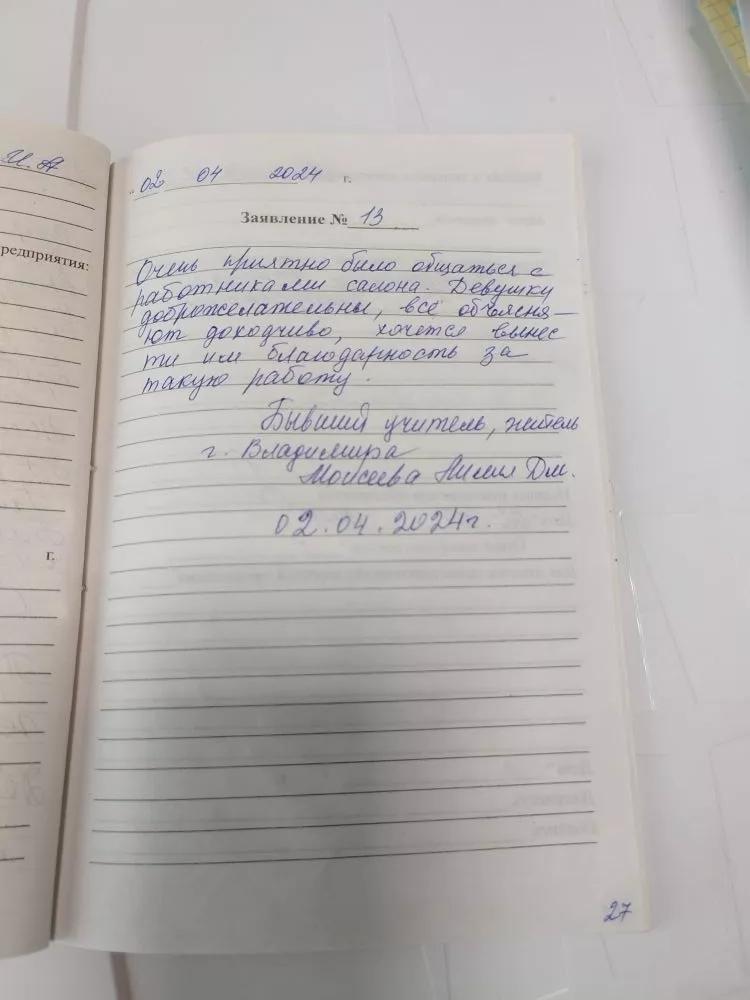 И.А
редприятия:
г.
„02 04 2024 г.
Заявление № 13
Очень приятно было общаться с
работниками салона. Девушки
доброжелательны, всё объясня–
ют доходчиво, хочется вынес
ти им благодарность за
такую работу.
Бывший учитель, житель
г. Владимира
Моисеева Лилия Дм.
02.04.2024г.
27